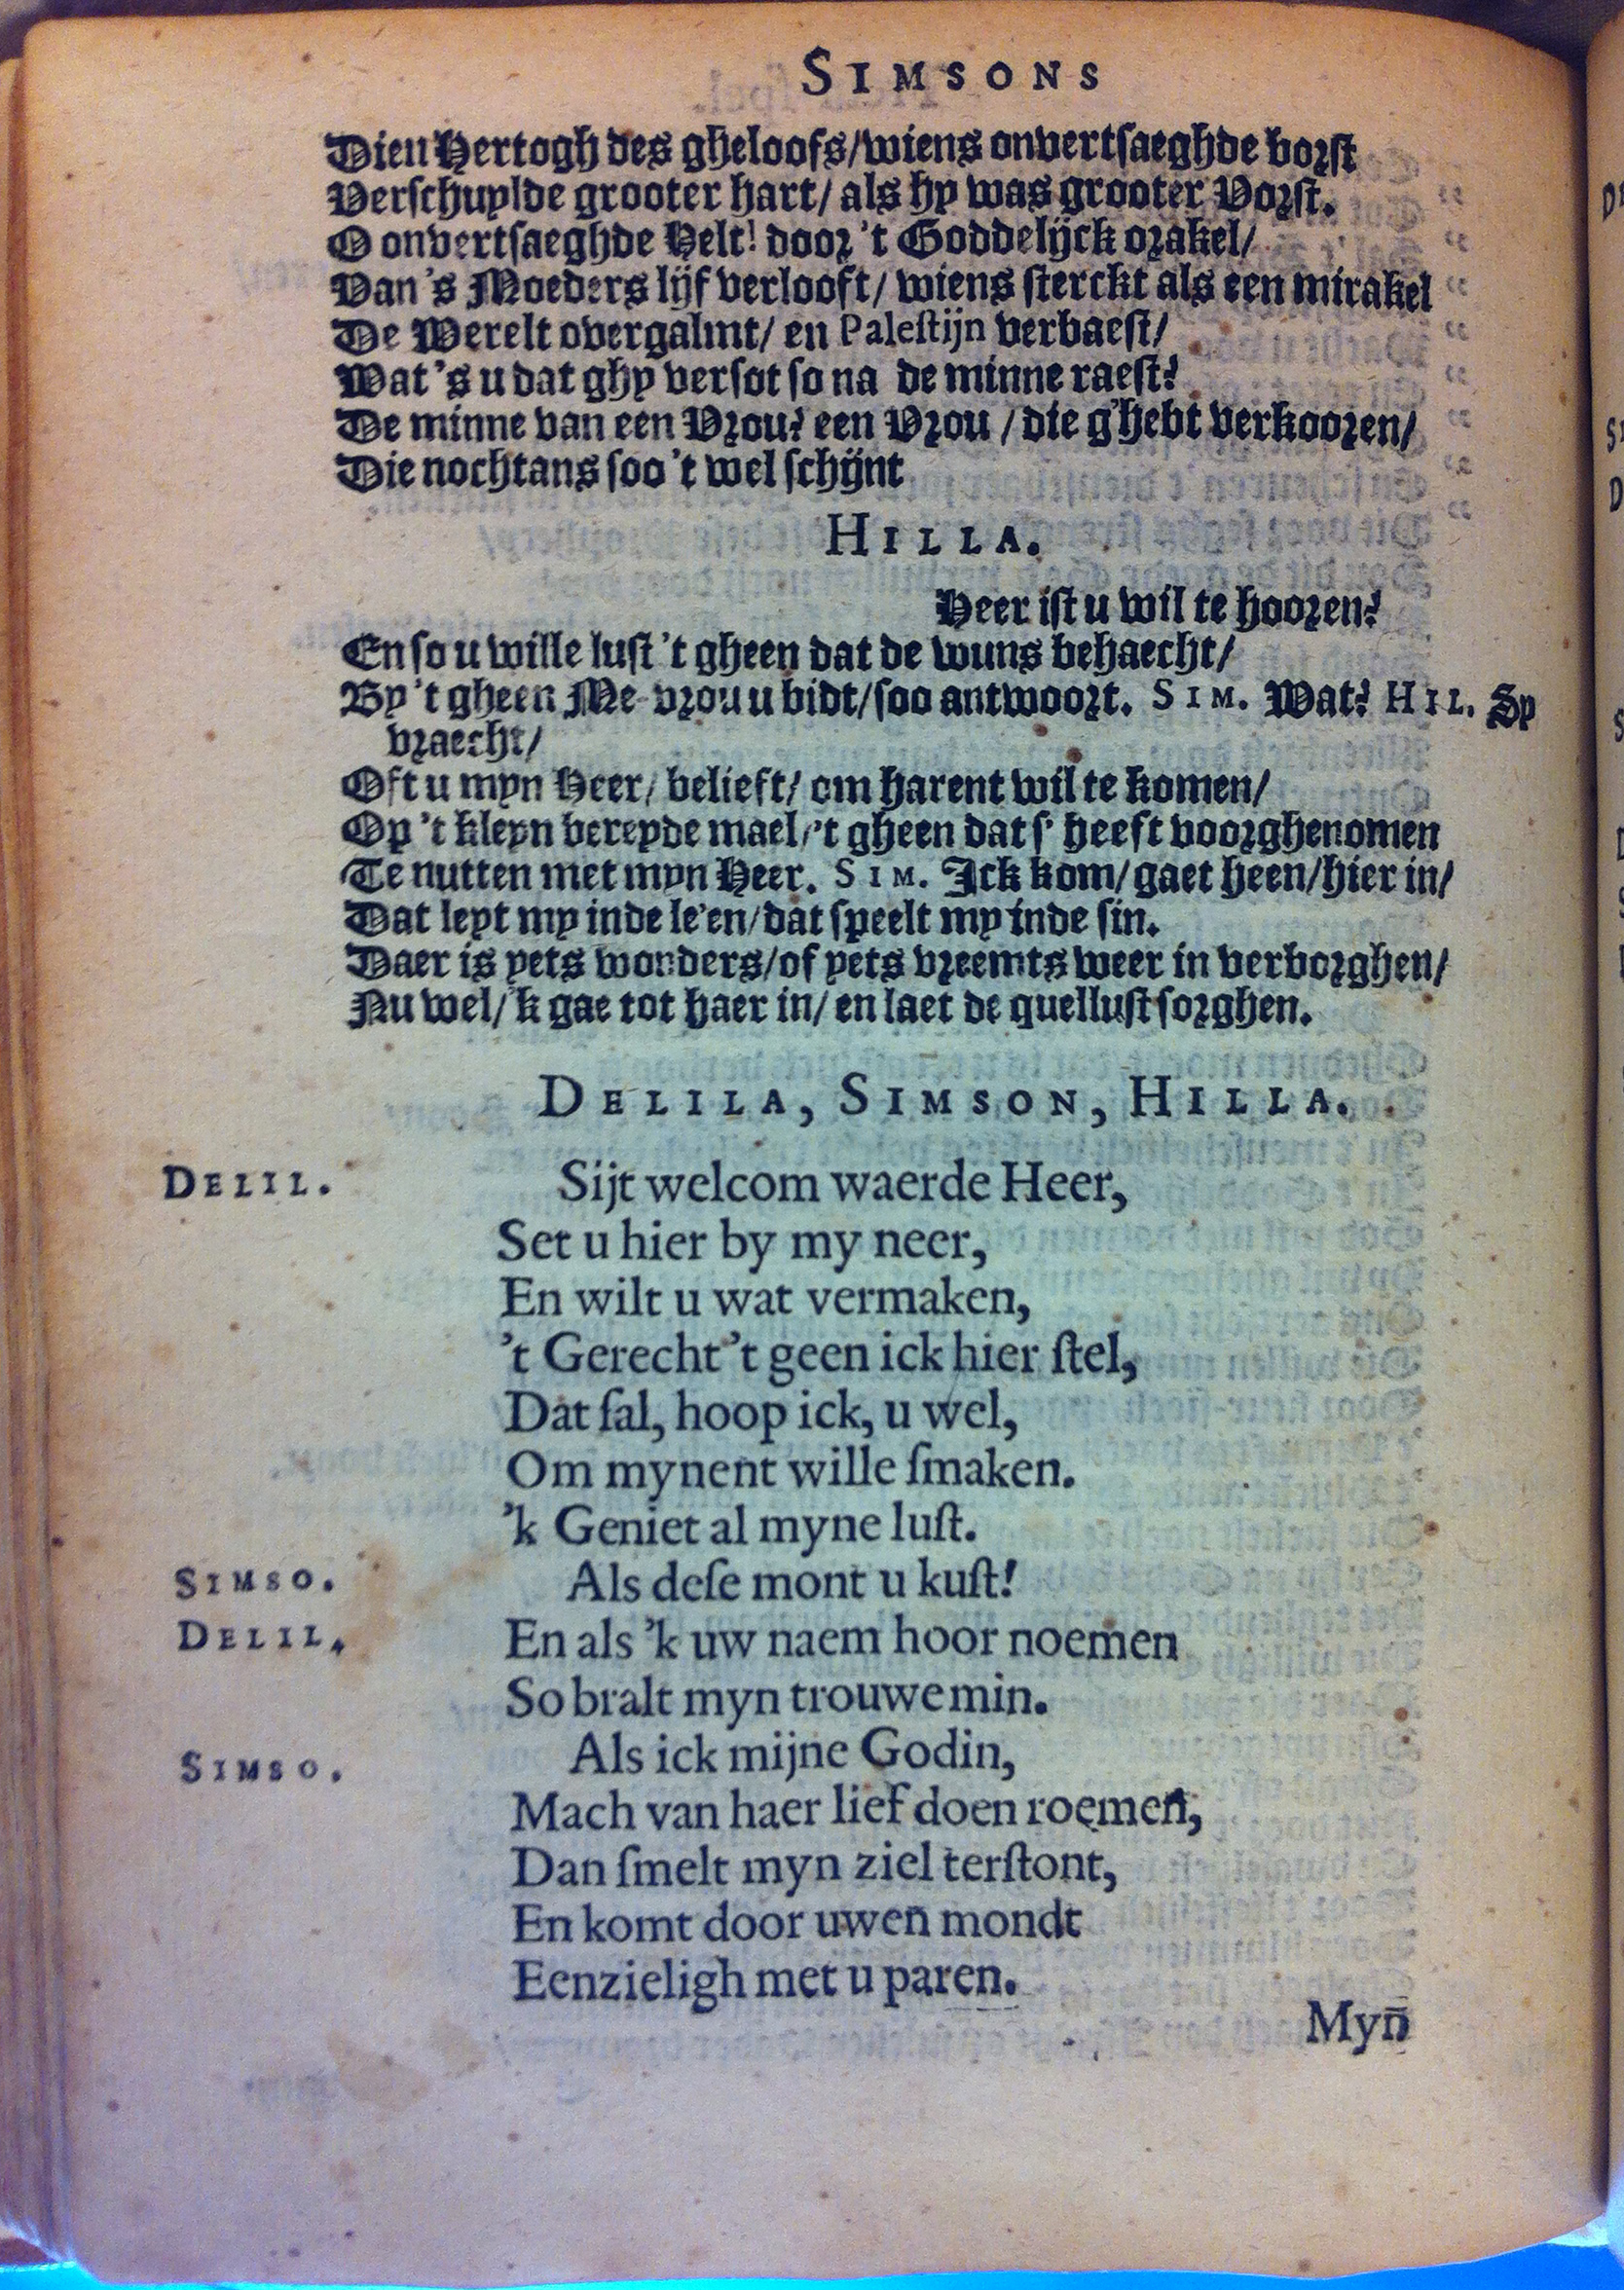 SIMSONS
Dien Hertogh des gheloofs/wiens onvertsaeghde borst
Verschuylde grooter hart/ als hy was grooter Vorst.
O onvertsaeghde Helt! door 't Goddelijck orakel/
Van 's Moeders lijf verlooft/ wiens sterckt als een mirakel
De Werelt overgalmt/ en Palestijn verbaest/
Wat 's u dat ghy versot so na de minne raest?
De minne van een Vrou? een Vrou / die g'hebt verkooren/
Die nochtans soo 't wel schijnt
HILLA.
Heer ist u wil te hooren?
En so u wille lust 't gheen dat de wuns behaecht/
By 't gheen Me-vrou u bidt/soo antwoort. SIM. Wat? HIL. Sy
vraecht/
Oft u myn Heer/ belieft/ om harent wil te komen/
Op 't kleyn bereyde mael/'t gheen dat s' heeft voorghenomen
Te nutten met myn Heer. SIM. Ick kom/ gaet heen/hier in/
Dat leyt my inde le'en/dat speelt my inde sin.
Daer is yets wonders/of yets vreemts weer in verborghen/
Nu wel/'k gae tot haer in/ en laet de quellust sorghen.
DELILA, SIMSON, HILLA.
DELIL. Sijt welcom waerde Heer,
Set u hier by my neer,
En wilt u wat vermaken,
't Gerecht 't geen ick hier ſtel,
Dat ſal, hoop ick, u wel,
Om mynent wille ſmaken.
'k Geniet al myne luſt.
SIMSO. Als deſe mont u kuſt!
DELIL. En als 'k uw naem hoor noemen
So bralt myn trouwe min.
SIMSO. Als ick mijne Godin,
Mach van haer lief doen roemen,
Dan ſmelt myn ziel terſtont,
En komt door uwen mondt
Eenzieligh met u paren.
Myn̄